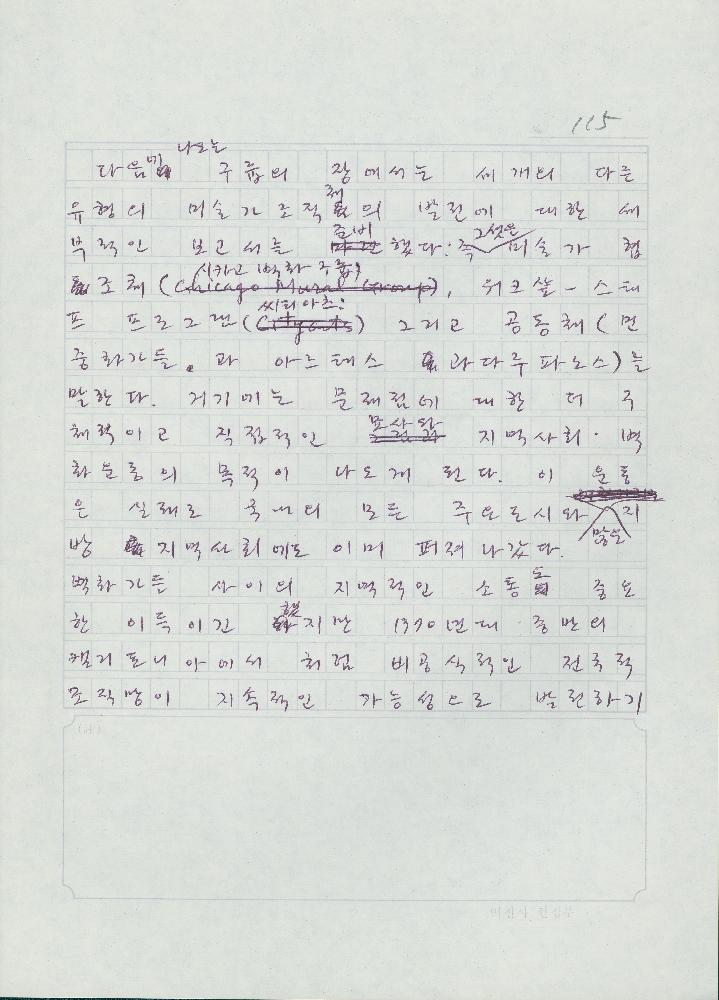 115
다음에 나오는 구룹의 장에서는 세 개의 다른
유형의 미술가 조직체의 발전에 대한 세
부적인 보고서를 준비했다: 그것은 미술가 협
조체 (시카고 벽화 구룹), 워크샾-스태
프 프로그램 (씨티아츠) 그리고 공동체 (민
중화가들과 아스테스 과다루파노스)를
말한다. 거기에는 문제점에 대한 더 구
체적이고 직접적인 묘사와 지역사회·벽
화운동의 목적이 나오게 된다. 이 운동
은 실제로 국내의 모든 주요도시와 많은 지
방 지역사회에도 이미 퍼져 나갔다.
벽화가들 사이의 지역적인 소통도 중요
한 이득이긴 했지만 1970년대 중반의
캘리포니아에서 처럼 비공식적인 전국적
조직망이 지속적인 가능성으로 발전하기